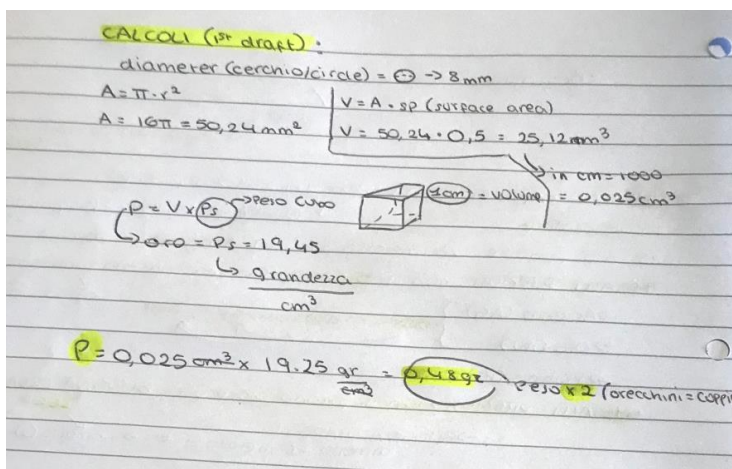 CALCOLI (1st draft):
diameter (cerchio/circle) = ⊖ → 8mm
A = π · r²
A = 16π = 50,24 mm²
V = A · sp (surface area)
V = 50,24 · 0,5 = 25,12 mm³
in cm = 1000
= 0,025 cm³
1cm = volume
P = V x Ps → peso cubo
oro = Ps = 19,45
grandezza
cm³
P = 0,025 cm³ x 19.25 gr/cm³ = 0,48gr peso x 2 (orecchini = coppi